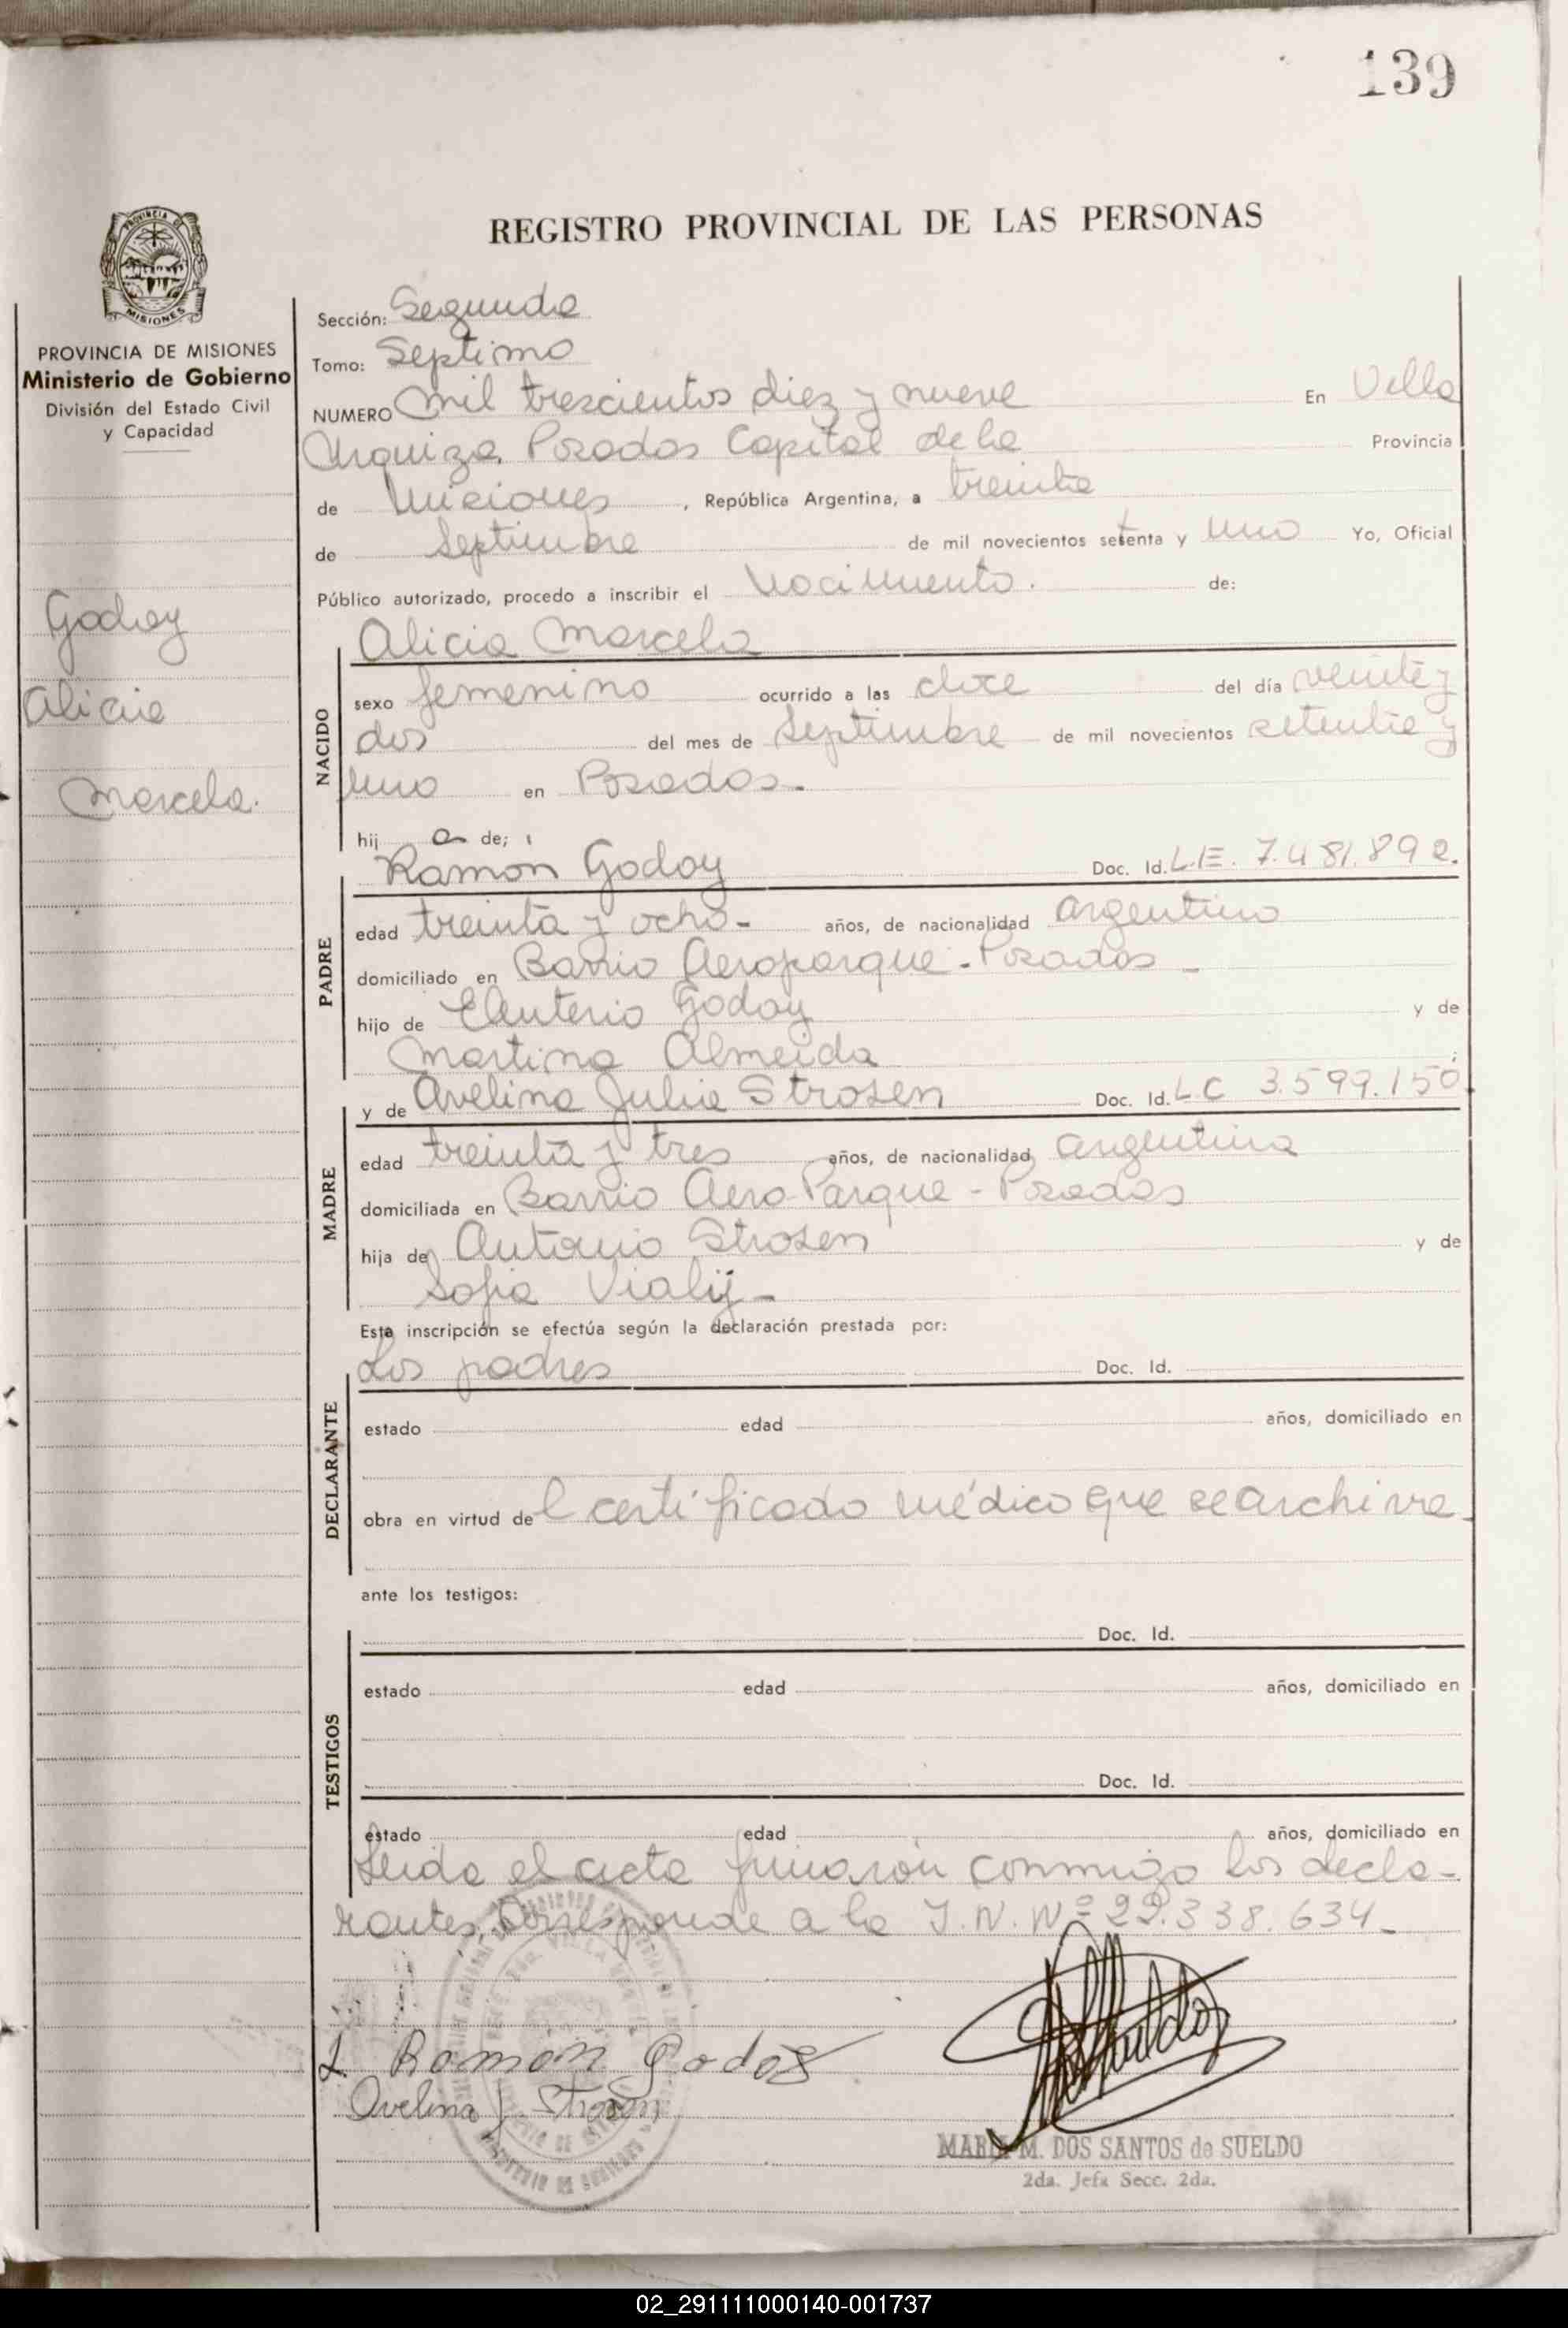 139
REGISTRO PROVINCIAL DE LAS PERSONAS
PROVINCIA DE MISIONES
Ministerio de Gobierno
División del Estado Civil
y Capacidad
Godoy
Alicia
Marcela.
Sección: Segunda
Tomo: Septimo
NUMERO Mil trescientos diez y nueve En Villa
Urquiza, Posadas Capital de la Provincia
de Misiones, República Argentina, a treinta
de Septiembre de mil novecientos setenta y uno Yo, Oficial
Público autorizado, procedo a inscribir el Nacimiento. de:
Alicia Marcela
NACIDO
sexo femenino ocurrido a las doce del día veinte y
dos del mes de Septiembre de mil novecientos setenta y
uno en Posadas.
hij a de;
Ramon Godoy Doc. Id. L.E. 7.481.892.
PADRE
edad treinta y ocho - años, de nacionalidad argentino
domiciliado en Barrio Aeroparque - Posadas -
hijo de Eleuterio Godoy y de
Martina Almeida
y de Avelina Julia Strosen Doc. Id. L.C 3.599.150
MADRE
edad treinta y tres años, de nacionalidad argentina
domiciliada en Barrio Aero Parque - Posadas
hija de Antonio Strosen y de
Sofia Vialij -
Esta inscripción se efectúa según la declaración prestada por:
Los padres Doc. Id.
DECLARANTE
estado edad años, domiciliado en
obra en virtud del certificado médico que se archiva.
ante los testigos:
Doc. Id.
TESTIGOS
estado edad años, domiciliado en
Doc. Id.
estado edad años, domiciliado en
Leida el acta firmaron conmigo los decla-
rantes. Corresponde a la I.N. Nº 22.338.634 -
Ramón Godoy
Avelina J. Strosen
MARIA M. DOS SANTOS de SUELDO
2da. Jefa Secc. 2da.
02_291111000140-001737